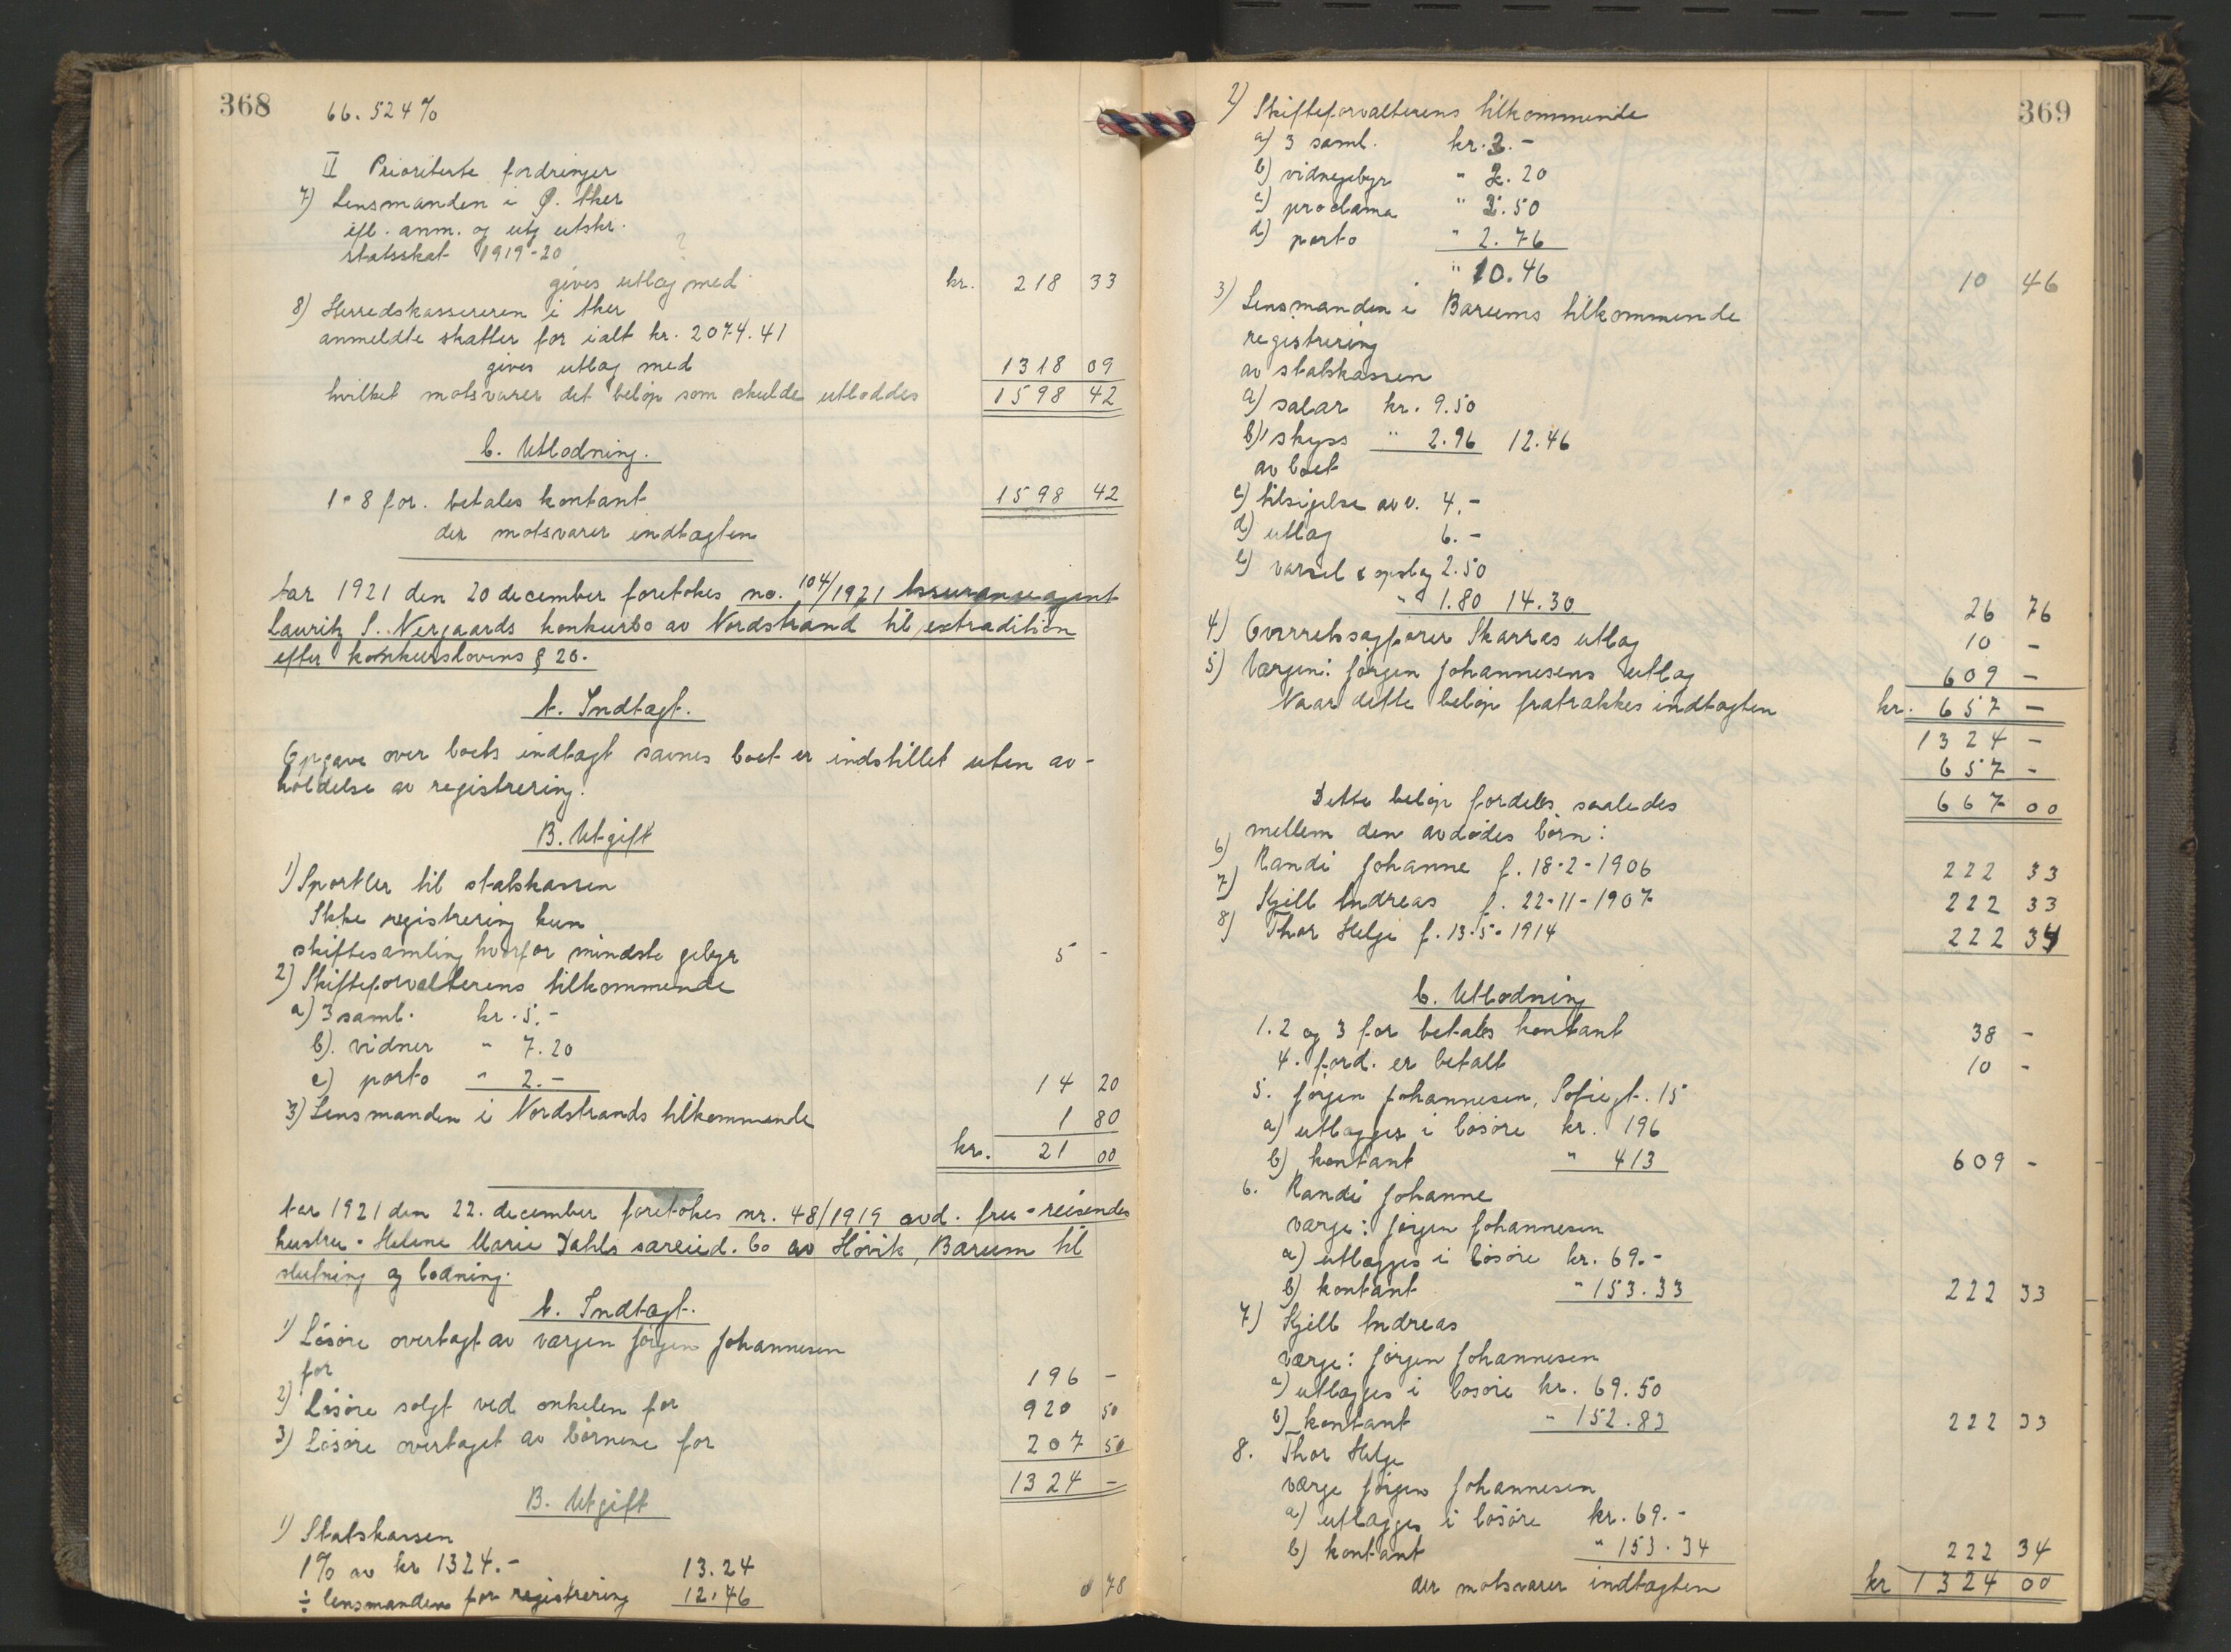 368
66.524%
II Prioriterte fordringer
7) Lensmanden i Ø. Aker
efl. anm. og utg utskr.
statsskat 1919-20
gives utlæg med kr. 218 33
8) Herredskassereren i Aker
anmeldte skatter for ialt kr. 2074.41
gives utlæg med 1318 09
hvilket motsvarer det beløp som skulde utloddes 1598 42
C. Utlodning.
1-8 for. betales kontant 1598 42
der motsvarer indtægten
Aar 1921 den 20 december foretokes no. 104/1921 Assuranseagent
Lauritz S. Nergaards konkursbo av Nordstrand til extradition
efter konkurslovens § 20.
A. Indtægt.
Opgave over boets indtægt savnes boet er indstillet uten av-
holdelse av registrering.
B. Utgift
1) Sportler til statskassen
Ikke registrering kun
skiftesamling hvorfor mindste gebyr 5 -
2) Skifteforvalterens tilkommende
a) 3 saml. kr. 5.-
b). vidner " 7.20
c) porto " 2.- 14 20
3) Lensmanden i Nordstrands tilkommende 1 80
kr. 21 00
Aar 1921 den 22. december foretokes nr. 48/1919 avd. fru - reisendes
hustru - Helene Marie Dahls særeied. bo av Høvik, Bærum til
slutning og lodning.
A. Indtægt.
1) Løsøre overtagt av værgen Jørgen Johannesen
for 196 -
2) Løsøre solgt ved onkelen for 920 50
3) Løsøre overtaget av børnene for 207 50
1324 -
B. Utgift
1) Statskassen
1% av kr 1324.- 13.24
÷ lensmanden for registrering 12.46 0 78
369
2) Skifteforvalterens tilkommende
a) 3 saml. kr. 3.-
b) vidnegebyr " 2.20
c) proclama " 2.50
d) porto " 2.76
" 10.46 10 46
3) Lensmanden i Bærums tilkommende
registrering
av statskassen
a) salær kr. 9.50
b) skyss " 2.96 12.46
av boet
c) tilsigelse av v. 4.-
d) utlæg 6.-
e) varsel & opslag 2.50
" 1.80 14.30 26 76
4) Overretssagfører Skarras utlæg 10 -
5) Værgen: Jørgen Johannesens utlæg 609 -
Naar dette beløp fratrækkes indtægten kr. 657 -
1324 -
657 -
667 00
Dette beløp fordeles saaledes
mellem den avdødes børn:
6) Randi Johanne f. 18-2-1906 222 33
7) Kjell Andreas f. 22-11-1907 222 33
8) Thor Helge f. 13-5-1914 222 34
C. Utlodning
1.2 og 3 for betales kontant 38 -
4. ford. er betalt 10 -
5. Jørgen Johannesen, Sofiegt. 15
a) utlægges i løsøre kr. 196
b) kontant " 413 609 -
6. Randi Johanne
værge: Jørgen Johannesen
a) utlægges i løsøre kr. 69.-
b) kontant " 153.33 222 33
7) Kjell Andreas
værge: Jørgen Johannesen
a) utlægges i løsøre kr. 69.50
b) kontant " 152.83 222 33
8. Thor Helge
værge Jørgen Johannesen
a) utlægges i løsøre kr. 69.-
b) kontant " 153.34 222 34
der motsvarer indtægten kr 1324 00